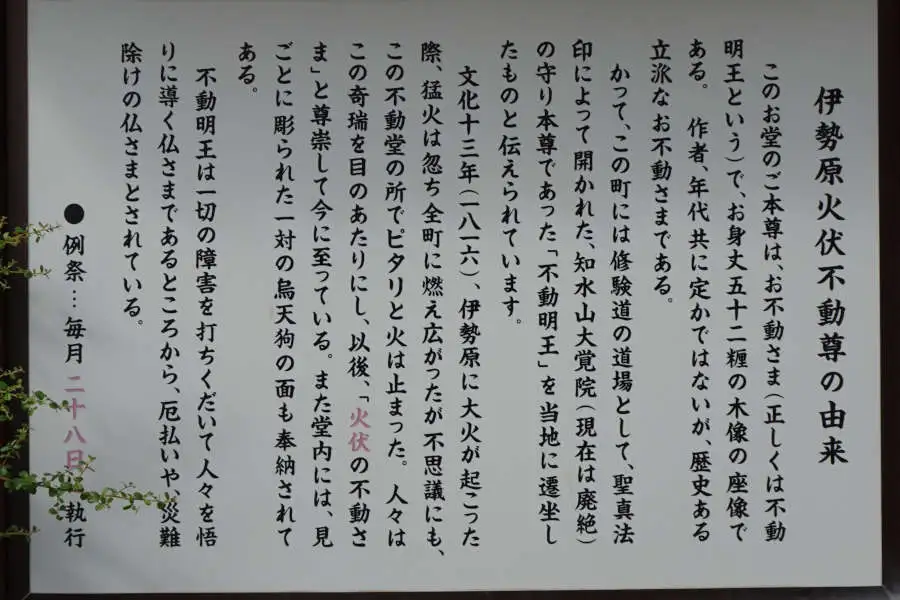 伊勢原火伏不動尊の由来
このお堂のご本尊は、お不動さま(正しくは不動
明王という)で、お身丈五十二糎の木像の座像で
ある。 作者、年代共に定かではないが、歴史ある
立派なお不動さまである。
かって、この町には修験道の道場として、聖真法
印によって開かれた、知水山大覚院(現在は廃絶)
の守り本尊であった「不動明王」を当地に遷坐し
たものと伝えられています。
文化十三年(一八一六)、伊勢原に大火が起こった
際、猛火は忽ち全町に燃え広がったが不思議にも、
この不動堂の所でピタリと火は止まった。人々は
この奇瑞を目のあたりにし、以後、「火伏の不動さ
ま」と尊崇して今に至っている。また堂内には、見
ごとに彫られた一対の烏天狗の面も奉納されて
ある。
不動明王は一切の障害を打ちくだいて人々を悟
りに導く仏さまであるところから、厄払いや、災難
除けの仏さまとされている。
●例祭…毎月二十八日 執行